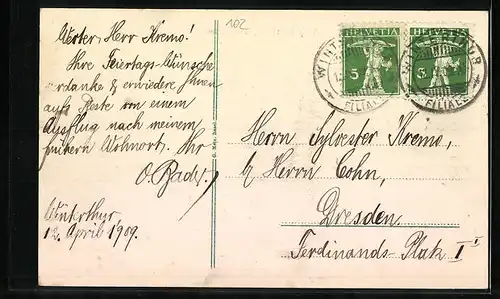 102
Werter Herr Kremo!
Ihre Feiertags-Wünsche
verdanke & erwiedere Ihnen
aufs Beste von einem
Ausflug nach meinem
frühern Wohnort. Ihr
Winterthur,
12. April 1909.
HELVETIA
5
HELVETIA
5
WINT
FILIALE
FILIALE
Herrn Sylvester Kremo,
b/ Herrn Cohn,
Dresden
Ferdinands-Platz I